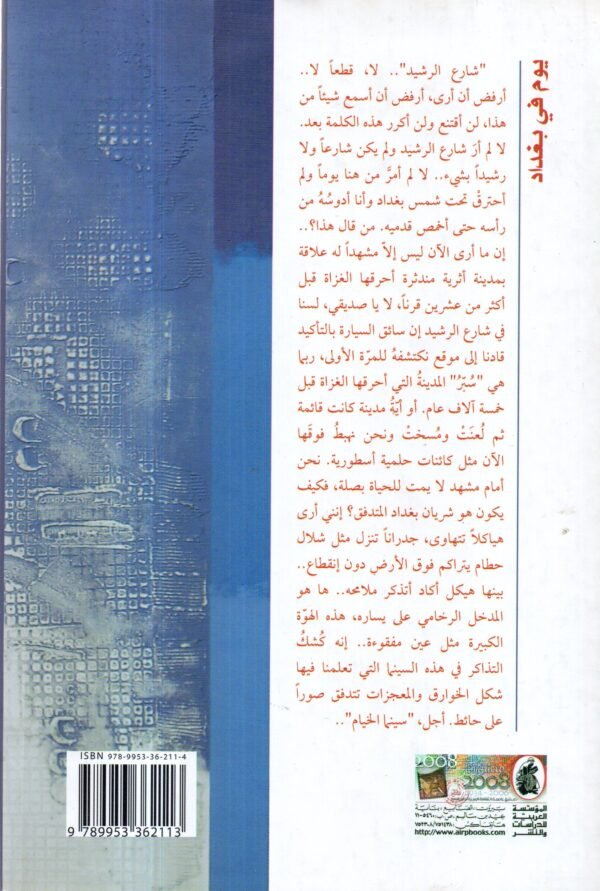 يوم في بغداد
"شارع الرشيد".. لا، قطعاً لا..
أرفض أن أرى، أرفض أن أسمع شيئاً من
هذا، لن أقتنع ولن أكرر هذه الكلمة بعد.
لا لم أرَ شارع الرشيد ولم يكن شارعاً ولا
رشيداً بشيء.. لا لم أمرَّ من هنا يوماً ولم
أحترقْ تحت شمس بغداد وأنا أدوسُهُ من
رأسه حتى أخمص قدميه. من قال هذا؟..
إن ما أرى الآن ليس إلاّ مشهداً له علاقة
بمدينة أثرية مندثرة أحرقها الغزاة قبل
أكثر من عشرين قرناً، لا يا صديقي، لسنا
في شارع الرشيد إن سائق السيارة بالتأكيد
قادنا إلى موقع نكتشفهُ للمرّة الأولى، ربما
هي "سُبّرُ" المدينةُ التي أحرقها الغزاة قبل
خمسة آلاف عام. أو أيّةُ مدينة كانت قائمة
ثم لُعنَتْ ومُسخَتْ ونحن نهبطُ فوقَها
الآن مثل كائنات حلمية أسطورية. نحن
أمام مشهد لا يمت للحياة بصلة، فكيف
يكون هو شريان بغداد المتدفق؟ إنني أرى
هياكلاً تتهاوى، جدراناً تنزل مثل شلال
حطام يتراكم فوق الأرضِ دون إنقطاع..
بينها هيكل أكاد أتذكر ملامحه.. ها هو
المدخل الرخامي على يساره، هذه الهوّة
الكبيرة مثل عين مفقوءة.. إنه كُشكُ
التذاكر في هذه السينما التي تعلمنا فيها
شكل الخوارق والمعجزات تتدفق صوراً
على حائط. أجل، "سينما الخيام"..
ISBN 978-9953-36-211-4
9 789953 362113
2008
2008
المؤسسة
العربية
للدراسات
والنشر
http://www.airpbooks.com